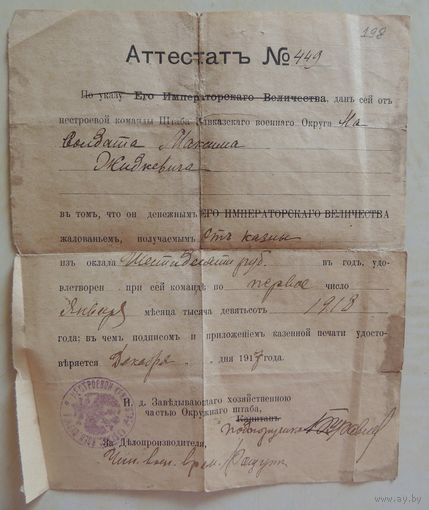 198
Аттестатъ № 449
По указу Его Императорскаго Величества, данъ сей отъ
нестроевой команды Штаба Кавказскаго военнаго Округа На
Солдата Максима
Жидкевича
въ томъ, что он денежнымъ ЕГО ИМПЕРАТОРСКАГО ВЕЛИЧЕСТВА
жалованьемъ, получаемымъ Отъ казны
изъ оклада Шестидесяти руб. въ годъ, удо-
влетворенъ при сей командѣ по первое число
Января мѣсяца тысяча девятьсотъ 1918
года: въ чемъ подписомъ и приложеніем казенной печати удосто-
вѣряется Декабря дня 1917 года.
И. д. Завѣдывающаго хозяйственною
частью Окружнаго штаба,
Капитанъ
За Дѣлопроизводителя,
ay.by